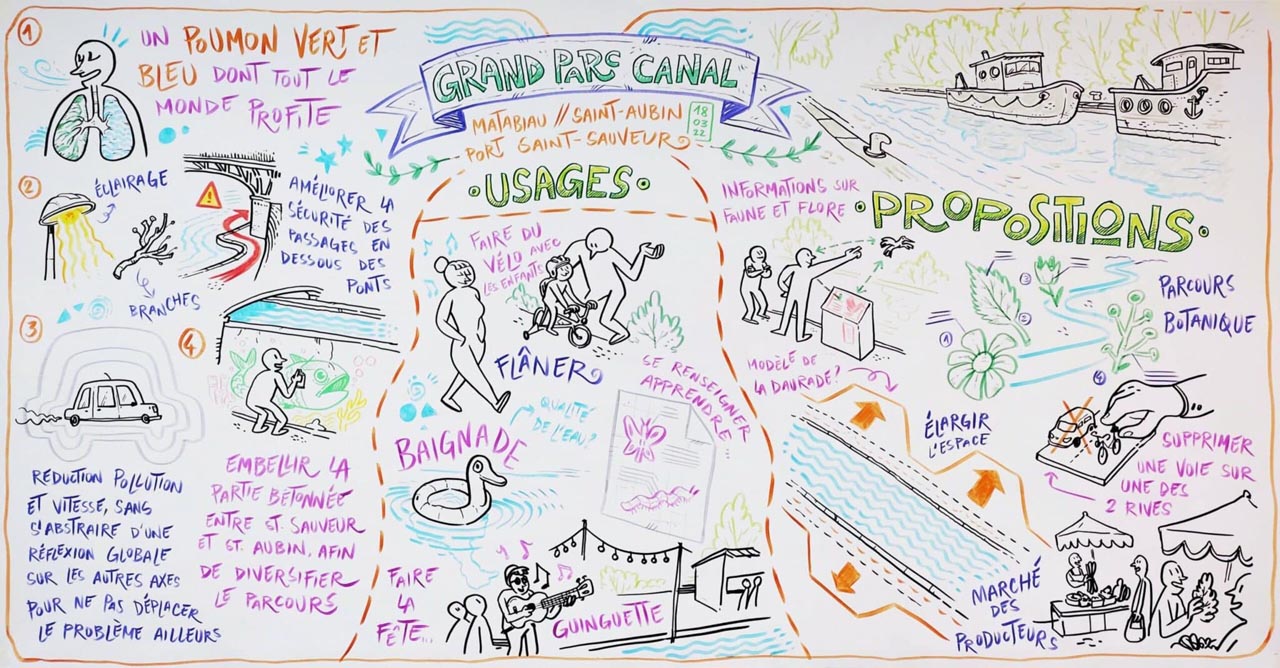 GRAND PARC CANAL
MATABIAU // SAINT-AUBIN
PORT SAINT-SAUVEUR
18
03
22
1
UN POUMON VERT ET
BLEU DONT TOUT LE
MONDE PROFITE
2
ÉCLAIRAGE
BRANCHES
AMÉLIORER LA
SÉCURITÉ DES
PASSAGES EN
DESSOUS DES
PONTS
3
RÉDUCTION POLLUTION
ET VITESSE, SANS
S'ABSTRAIRE D'UNE
RÉFLEXION GLOBALE
SUR LES AUTRES AXES
POUR NE PAS DÉPLACER
LE PROBLÈME AILLEURS
4
EMBELLIR LA
PARTIE BÉTONNÉE
ENTRE ST. SAUVEUR
ET ST. AUBIN, AFIN
DE DIVERSIFIER
LE PARCOURS
•USAGES•
FAIRE DU
VÉLO AVEC
LES ENFANTS
FLÂNER
QUALITÉ
DE L'EAU?
BAIGNADE
SE RENSEIGNER
APPRENDRE
FAIRE
LA
FÊTE...
GUINGUETTE
•PROPOSITIONS•
INFORMATIONS SUR
FAUNE ET FLORE
PARCOURS
BOTANIQUE
1
2
3
4
MODÈLE DE
LA DAURADE?
ÉLARGIR
L'ESPACE
SUPPRIMER
UNE VOIE SUR
UNE DES
2 RIVES
MARCHÉ
DES
PRODUCTEURS